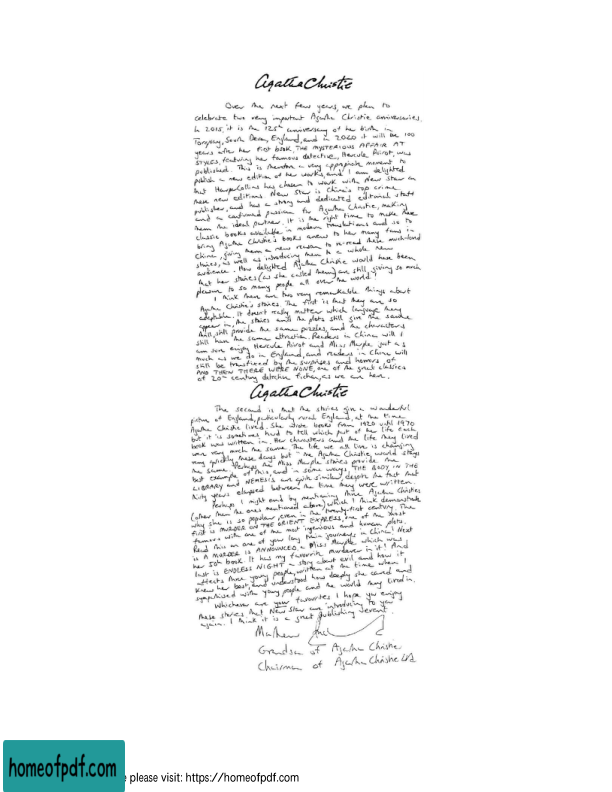 Agatha Christie
Over the next few years, we plan to
celebrate two very important Agatha Christie anniversaries.
In 2015, it is the 125th anniversary of her birth in
Torquay, South Devon, England, and in 2020 it will be 100
years after her first book, THE MYSTERIOUS AFFAIR AT
STYLES, featuring her famous detective, Hercule Poirot, was
published. This is therefore a very appropriate moment to
publish a new edition of her works, and I am delighted
that HarperCollins has chosen to work with New Star on
these new editions. New Star is China's top crime
publisher, and has a strong and dedicated editorial staff
and a continued passion for Agatha Christie, making
them the ideal partner. It is the right time to make these
classic books available in modern translations and so to
bring Agatha Christie's books anew to her many fans in
China, giving them a new reason to re-read these much-loved
stories, as well as introducing them to a whole new
audience. How delighted Agatha Christie would have been
that her stories (as she called them) are still giving so much
pleasure to so many people all over the world!
I think there are two very remarkable things about
Agatha Christie's stories. The first is that they are so
adaptable. It doesn't really matter which language they
appear in, the stories and the plots still give the same
thrill, still provide the same puzzles, and the characters
still have the same attraction. Readers in China will I
am sure enjoy Hercule Poirot and Miss Marple just as
much as we do in England, and readers in China will
still be transfixed by the surprises and horrors of
AND THEN THERE WERE NONE, one of the great classics
of 20th century detective fiction, as we are here.
Agatha Christie
The second is that the stories give a wonderful
picture of England, particularly rural England, at the time
Agatha Christie lived. She wrote books from 1920 until 1970
but it is sometimes hard to tell which part of her life each
book was written in. Her characters and the life they lived
were very much the same. The life we all live is changing
very quickly these days but in the Agatha Christie world stays
the same. Perhaps the Miss Marple stories provide the
best example of this, and in some ways THE BODY IN THE
LIBRARY and NEMESIS are quite similar despite the fact that
thirty years elapsed between the time they were written.
Perhaps I might end by mentioning three Agatha Christies
(other than the ones mentioned above) which I think demonstrate
why she is so popular, even in the twenty-first century. The
first is MURDER ON THE ORIENT EXPRESS, one of the most
famous with one of the most ingenious and human plots.
Read this on one of your long train journeys in China! Next
is A MURDER IS ANNOUNCED, a Miss Marple which was
her 50th book. It has my favourite murderer in it! And
last is ENDLESS NIGHT - a story about evil and how it
affects three young people, written at the time when I
knew her best, and understood how deeply she cared and
sympathised with young people and the world they lived in.
Whichever are your favourites I hope you enjoy
these stories that New Star are introducing to you
again. I think it is a great publishing event.
Mathew
Grandson of Agatha Christie
Chairman of Agatha Christie Ltd
homeofpdf.com
please visit: https://homeofpdf.com